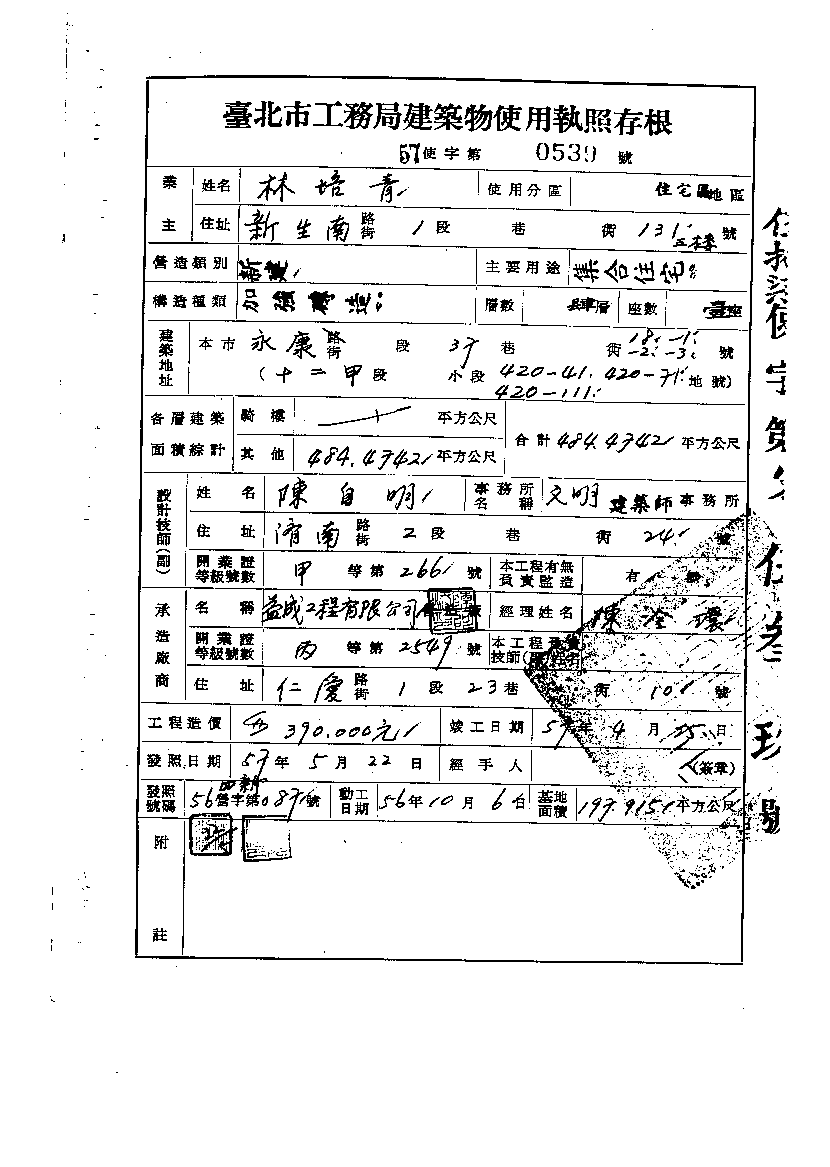 臺北市工務局建築物使用執照存根
57使字第 0539 號
業主 姓名 林培青 使用分區 住宅區地區
住址 新生南路街 1段 巷 街 131 三樓 號
營造類別 新建 主要用途 集合住宅
構造種類 加強磚造 層數 層 座數 壹座
建築地址 本市 永康路街 段 37巷 街 18-1 -2 -3 號
(十二甲段 小段 420-41 420-71 420-111 地號)
各層建築面積綜計 騎樓 平方公尺 合計 484.4742 平方公尺
其他 484.4742 平方公尺
設計技師(副) 姓名 陳自明 事務所名稱 文明 建築師事務所
住址 濟南路街 2段 巷 街 24 號
開業證等級號數 甲等第 266 號 本工程有無負責監造 有
承造廠商 名稱 益成工程有限公司 經理姓名 陳 環
開業證等級號數 丙等第 2549 號 本工程
住址 仁愛路街 1段 23巷 街 10 號
工程造價 390,000元 竣工日期 57年 4月 25日
發照日期 57年 5月 22日 經手人 (簽章)
發照號碼 56營字第087號 動工日期 56年 10月 6日 基地面積 197.9151 平方公尺
附註